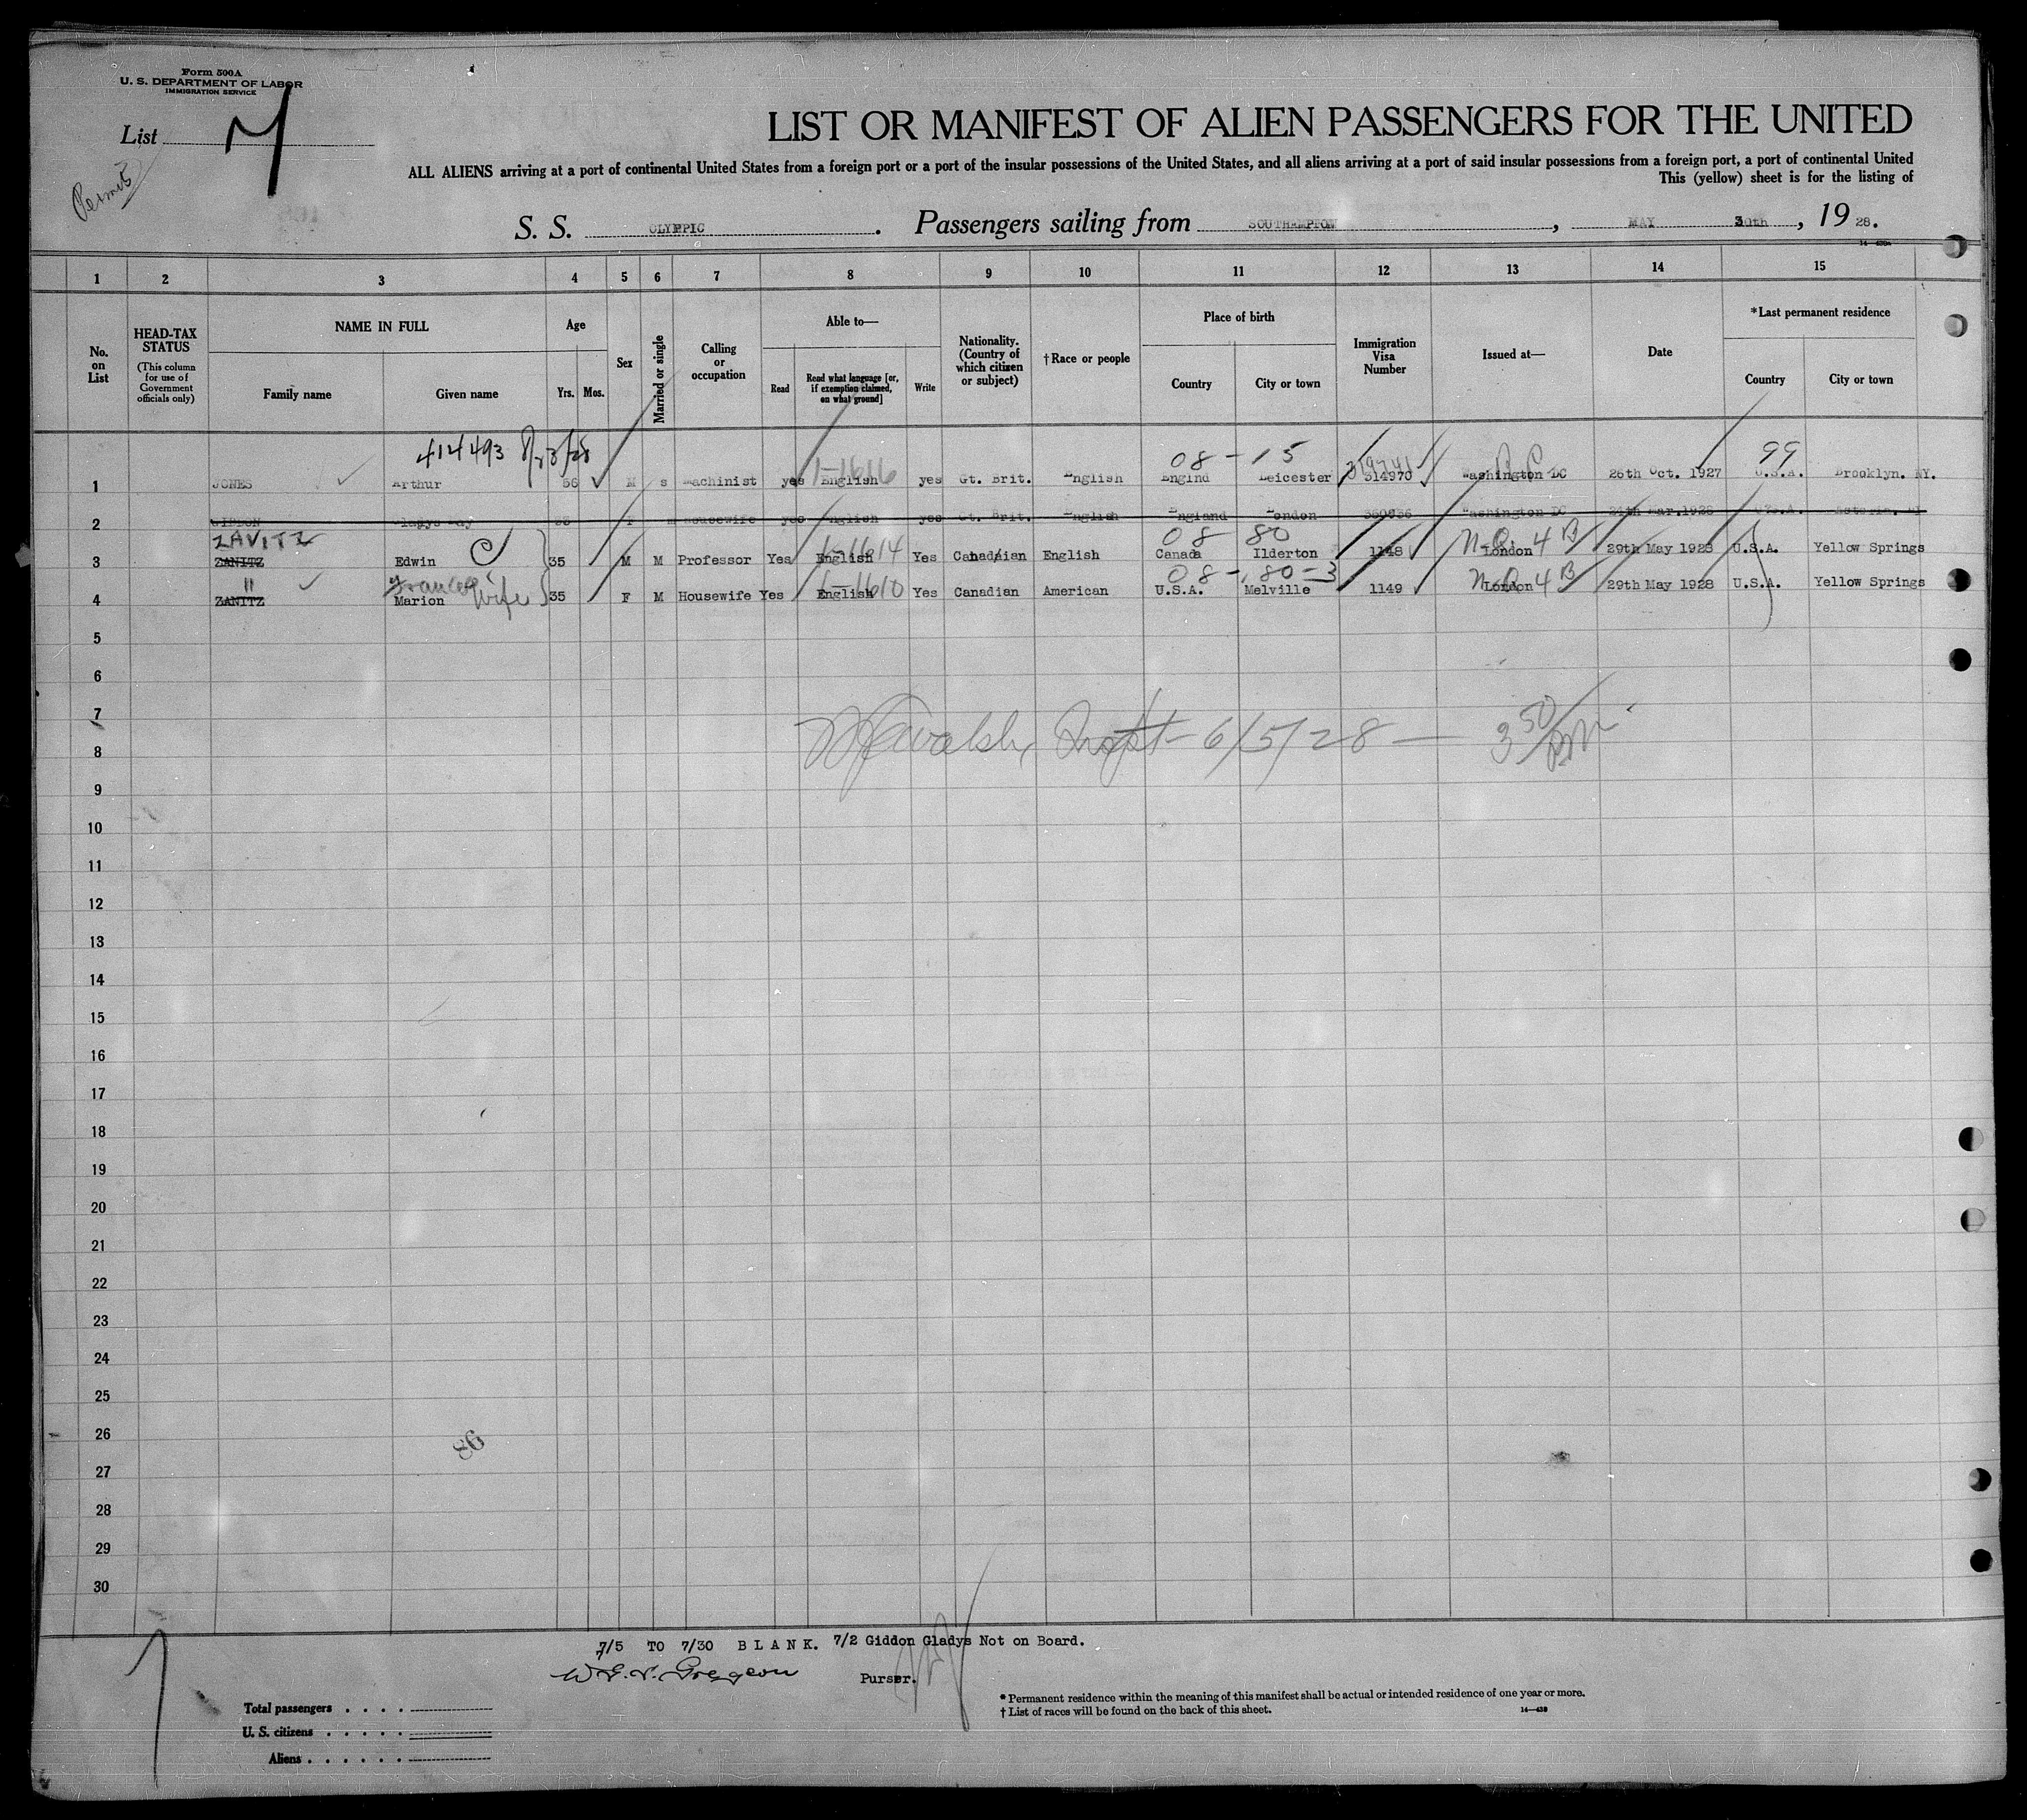 Form 500A
U. S. DEPARTMENT OF LABOR
IMMIGRATION SERVICE
List 7
Permits
LIST OR MANIFEST OF ALIEN PASSENGERS FOR THE UNITED
ALL ALIENS arriving at a port of continental United States from a foreign port or a port of the insular possessions of the United States, and all aliens arriving at a port of said insular possessions from a foreign port, a port of continental United
This (yellow) sheet is for the listing of
S. S. OLYMPIC. Passengers sailing from SOUTHAMPTON, MAY 30th, 1928.
1 2 3 4 5 6 7 8 9 10 11 12 13 14 15
No. on List
HEAD-TAX STATUS (This column for use of Government officials only)
NAME IN FULL
Family name Given name
Age
Yrs. Mos.
Sex
Married or single
Calling or occupation
Able to—
Read Read what language [or, if exemption claimed, on what ground] Write
Nationality. (Country of which citizen or subject)
†Race or people
Place of birth
Country City or town
Immigration Visa Number
Issued at—
Date
*Last permanent residence
Country City or town
414493 08-15 99
1 JONES Arthur 56 M s Machinist yes English yes Gt. Brit. English Englnd Leicester 314970 Washington DC 26th Oct. 1927 U.S.A. Brooklyn. NY.
2 Gladys May F M Housewife yes English yes Gt. Brit. English England London Washington DC 24th Mar.1928 U.S.A.
ZAVITZ 08 80
3 ZANITZ Edwin C 35 M M Professor Yes English Yes Canadian English Canada Ilderton 1148 London 29th May 1928 U.S.A. Yellow Springs
" Frances Wife 08-80-3
4 ZANITZ Marion 35 F M Housewife Yes English Yes Canadian American U.S.A. Melville 1149 London 29th May 1928 U.S.A. Yellow Springs
5
6
7
Walsh, Inspt- 6/5/28 — 3 50/pm
8
9
10
11
12
13
14
15
16
17
18
19
20
21
22
23
24
25
26
86
27
28
29
30
7/5 TO 7/30 BLANK. 7/2 Giddon Gladys Not on Board.
Purser.
Total passengers
U. S. citizens
Aliens
* Permanent residence within the meaning of this manifest shall be actual or intended residence of one year or more.
† List of races will be found on the back of this sheet.
14—438